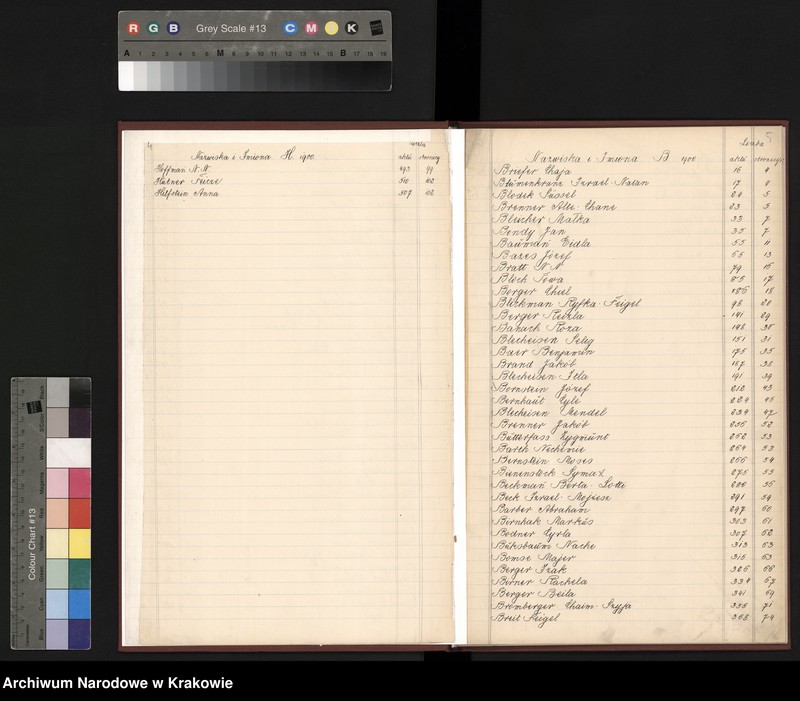 R G B Grey Scale #13 C M Y K
A 1 2 3 4 5 6 M 8 9 10 11 12 13 14 15 B 17 18 19
Colour Chart #13
Nazwiska i Imiona H. 1900
aktu stronicy
Hoffman N. N. 493 99
Hübner 510 102
Hilfstein Anna 507 102
Liczba
Nazwiska i Imiona B 1900
aktu stronicy
Briefer Chaja 16 4
Blumenkranz Izrael Natan 17 4
Blodek Süssel 24 5
Brenner Alte Chane 23 5
Blucher Malka 33 7
Bendy Jan 35 7
Bauman Eidla 55 11
Bazes Józef 65 13
Bratt N. N. 79 16
Bloch 85 17
Berger Chiel 18
Bleckman Ryfka Feigel 98 20
Berger Reizla 141 29
Banach Roza 148 30
Blecheisen Selig 151 31
Baer Benjamin 175 35
Brand Jakób 187 38
Blecheisen Itla 191 39
Bornstein Józef 212 43
Bernhaut 224 45
Blecheisen Mendel 234 47
Brenner Jakób 256 52
Butterfass Zygmunt 262 53
Barch Nechemie 264 53
Bernstein Moses 266 54
Bienenstock Symax 275 55
Beckman Berta Lotte 56
Beck Izrael Mojżesz 291 59
Barber Abraham 297 60
Birnhak Markus 303 61
Bodner Cyrla 307 62
Buksbaum Nache 313 63
Bomse Majer 315 63
Berger Izak 326 66
Birner Rachela 334 67
Berger Beila 341 69
Bromberger Chaim Szyja 355 71
Breit Feigel 368 74
Archiwum Narodowe w Krakowie